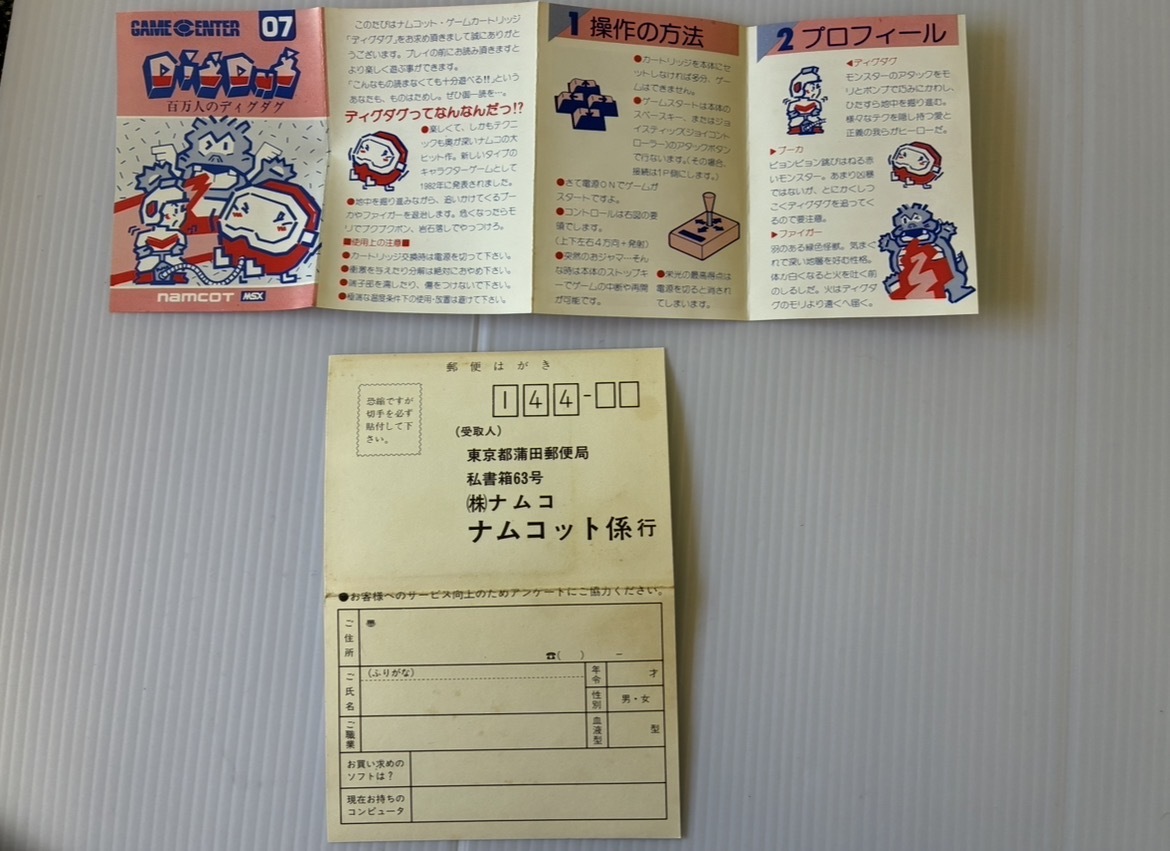 GAME CENTER
07
DIG DUG
百万人のディグダグ
namcot
MSX
このたびはナムコット・ゲームカートリッジ
「ディグダグ」をお求め頂きまして誠にありがと
うございます。プレイの前にお読み頂きますと
より楽しく遊ぶ事ができます。
「こんなもの読まなくても十分遊べる!!」という
あなたも、ものはためし。ぜひ御一読を…。
ディグダグってなんなんだっ!?
●楽しくて、しかもテクニ
ックも奥が深いナムコの大
ヒット作。新しいタイプの
キャラクターゲームとして
1982年に発表されました。
●地中を掘り進みながら、追いかけてくるプー
カやファイガーを退治します。危くなったらモ
リでプクプクポン、岩石落しでやっつけろ。
■使用上の注意■
●カートリッジ交換時は電源を切って下さい。
●衝撃を与えたり分解は絶対におやめ下さい。
●端子部を濡したり、傷をつけないで下さい。
●極端な温度条件下の使用・放置は避けて下さい。
1 操作の方法
●カートリッジを本体にセ
ットしなければ多分、ゲー
ムはできません。
●ゲームスタートは本体の
スペースキー、またはジョ
イスティック(ジョイコント
ローラー)のアタックボタン
で行ないます。(その場合、
接続は1P側にします。)
●さて電源ONでゲームが
スタートですよ。
●コントロールは右図の要
領でします。
(上下左右4方向+発射)
●突然のおジャマーそん
な時は本体のストップキ
ーでゲームの中断や再開
が可能です。
●栄光の最高得点は
電源を切ると消され
てしまいます。
2 プロフィール
◀ディグダグ
モンスターのアタックをモ
リとポンプで巧みにかわし、
ひたすら地中を掘り進む。
様々なテクを隠し持つ愛と
正義の我らがヒーローだ。
▶プーカ
ピョンピョン跳びはねる赤
いモンスター。あまり凶暴
ではないが、とにかくしつ
こくディグダグを追ってく
るので要注意。
▶ファイガー
羽のある緑色怪獣。気まぐ
れで深い地層を好む性格。
体が白くなると火を吐く前
のしるしだ。火はディグダ
グのモリより遠くへ届く。
郵便はがき
恐縮ですが
切手を必ず
貼付して下
さい。
144-
(受取人)
東京都蒲田郵便局
私書箱63号
㈱ナムコ
ナムコット係行
●お客様へのサービス向上のためアンケートにご協力ください。
ご住所
☎( ) −
ご氏名
(ふりがな)
年令
才
性別
男・女
ご職業
血液型
型
お買い求めの
ソフトは?
現在お持ちの
コンピュータ